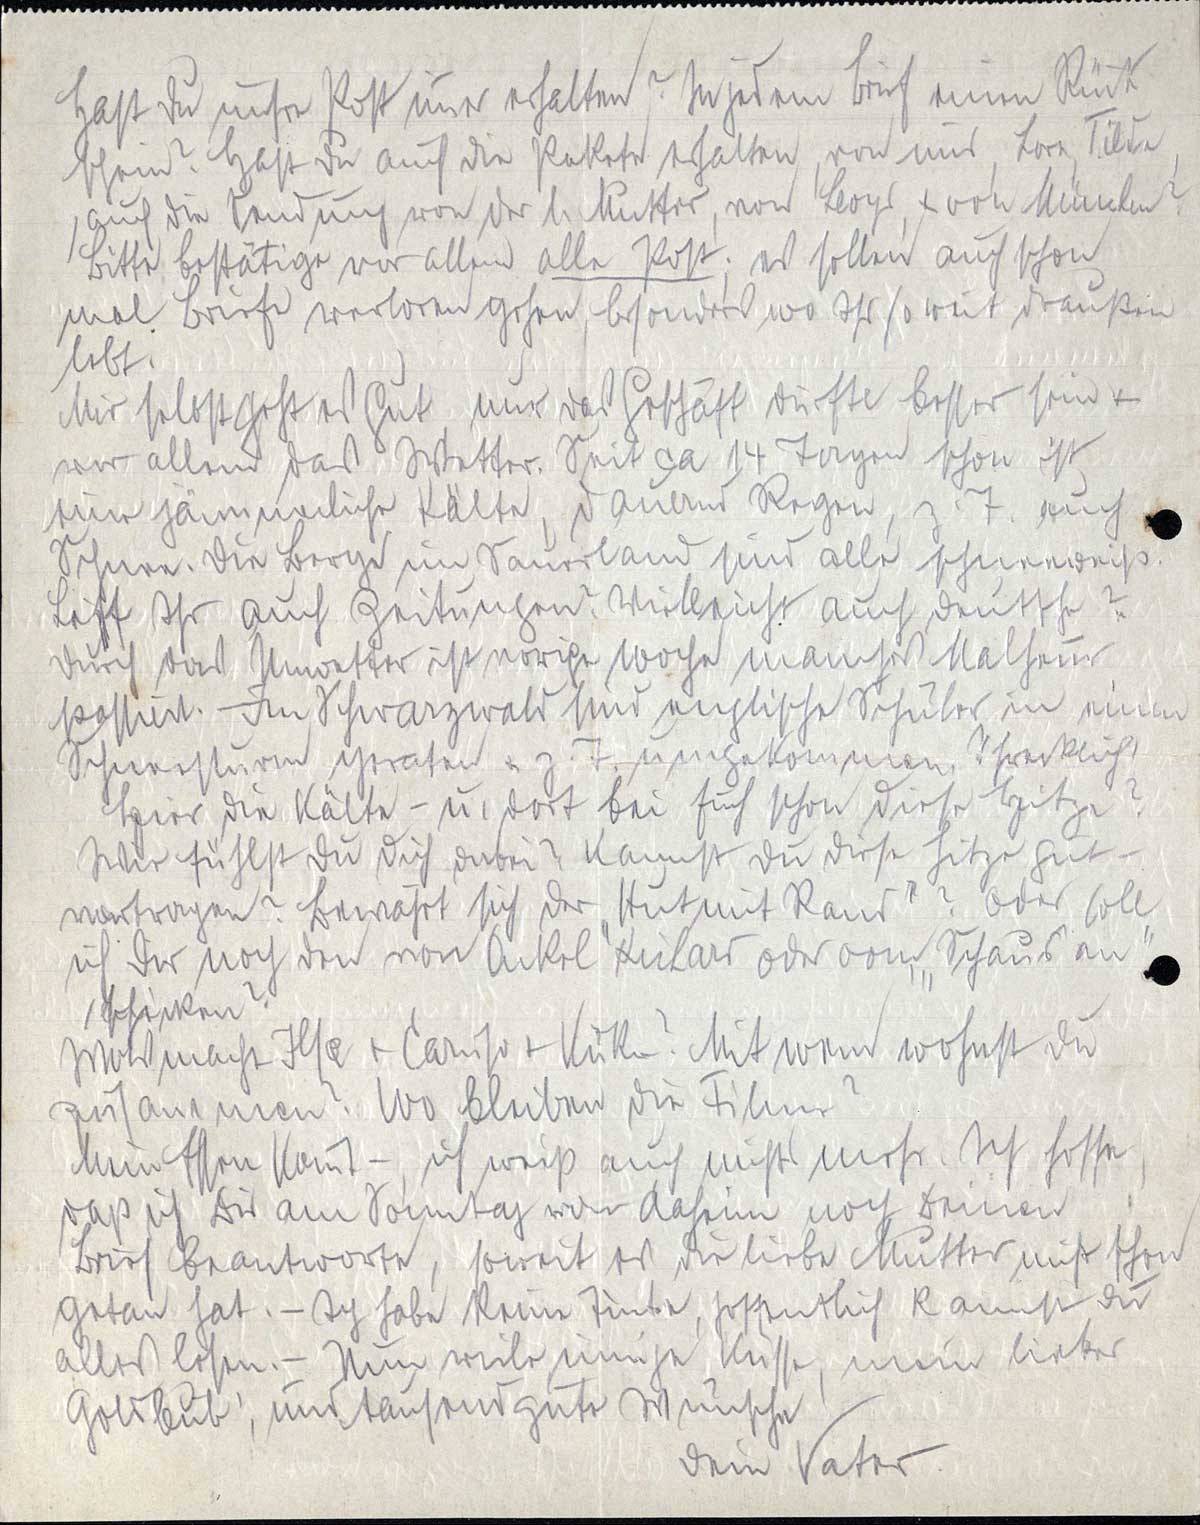 Hast Du unsre Post imer erhalten? In jedem Brief einen Rück
schein? Hast Du auch die Pakete erhalten, von uns, Lore, Tilde,
auch die Sendung von der l. Mutter, von & von München?
Bitte bestätige vor allem alle Post; es sollen auch schon
mal Briefe verloren gehen, besonders wo Ihr so weit draußen
lebt.
Mir selbst geht es Gut, nur das Geschäft dürfte besser sein &
vor allem das Wetter. Seit ca 14 Tagen schon ist
eine jämmerliche Kälte, dauernd Regen, z. T. auch
Schnee. Die Berge im Sauerland sind alle schneeweiß.
Lest Ihr auch Zeitungen? Vielleicht auch deutsche?
Durch das Unwetter ist vorige Woche manches Malheur
passiert. – Im Schwarzwald sind englische Schüler in einen
Schneesturm geraten u. z. T. umgekommen. Schrecklich!
Hier die Kälte – u. dort bei Euch schon diese Hitze?
Wie fühlst Du Dich dabei? Kannst Du diese Hitze gut –
vertragen? Bewährt sich der „Hut mit Rand"? Oder soll
ich Dir noch den von Onkel oder vom „Schaus" an
schicken?
Was macht Ilse & Caruso & Küken? Mit wem wohnst Du
zusammen? Wo bleiben die Filme?
Mein Essen komt –, ich weiß auch nichts mehr. Ich hoffe,
daß ich Dir am Sonntag von daheim noch Deinen
Brief beantworte, soweit es die liebe Mutter nicht schon
getan hat. – Ich habe keine Tinte, hoffentlich kannst Du
alles lesen. – Nun viele innige Küsse, mein lieber
Goldbub', und tausend gute Wünsche
Dein Vater.